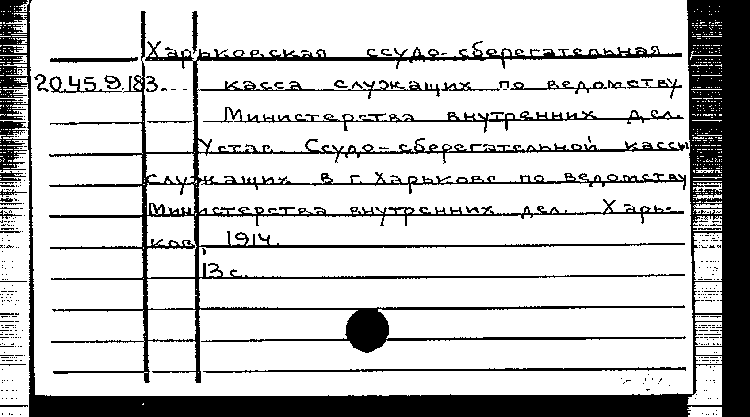 Харьковская ссудо-сберегательная
20.45.9.183. касса служащих по ведомству
Министерства внутренних дел.
Устав Ссудо-сберегательной кассы
служащих в г. Харькове по ведомству
Министерства внутренних дел. Харь-
ков, 1914.
13 с.